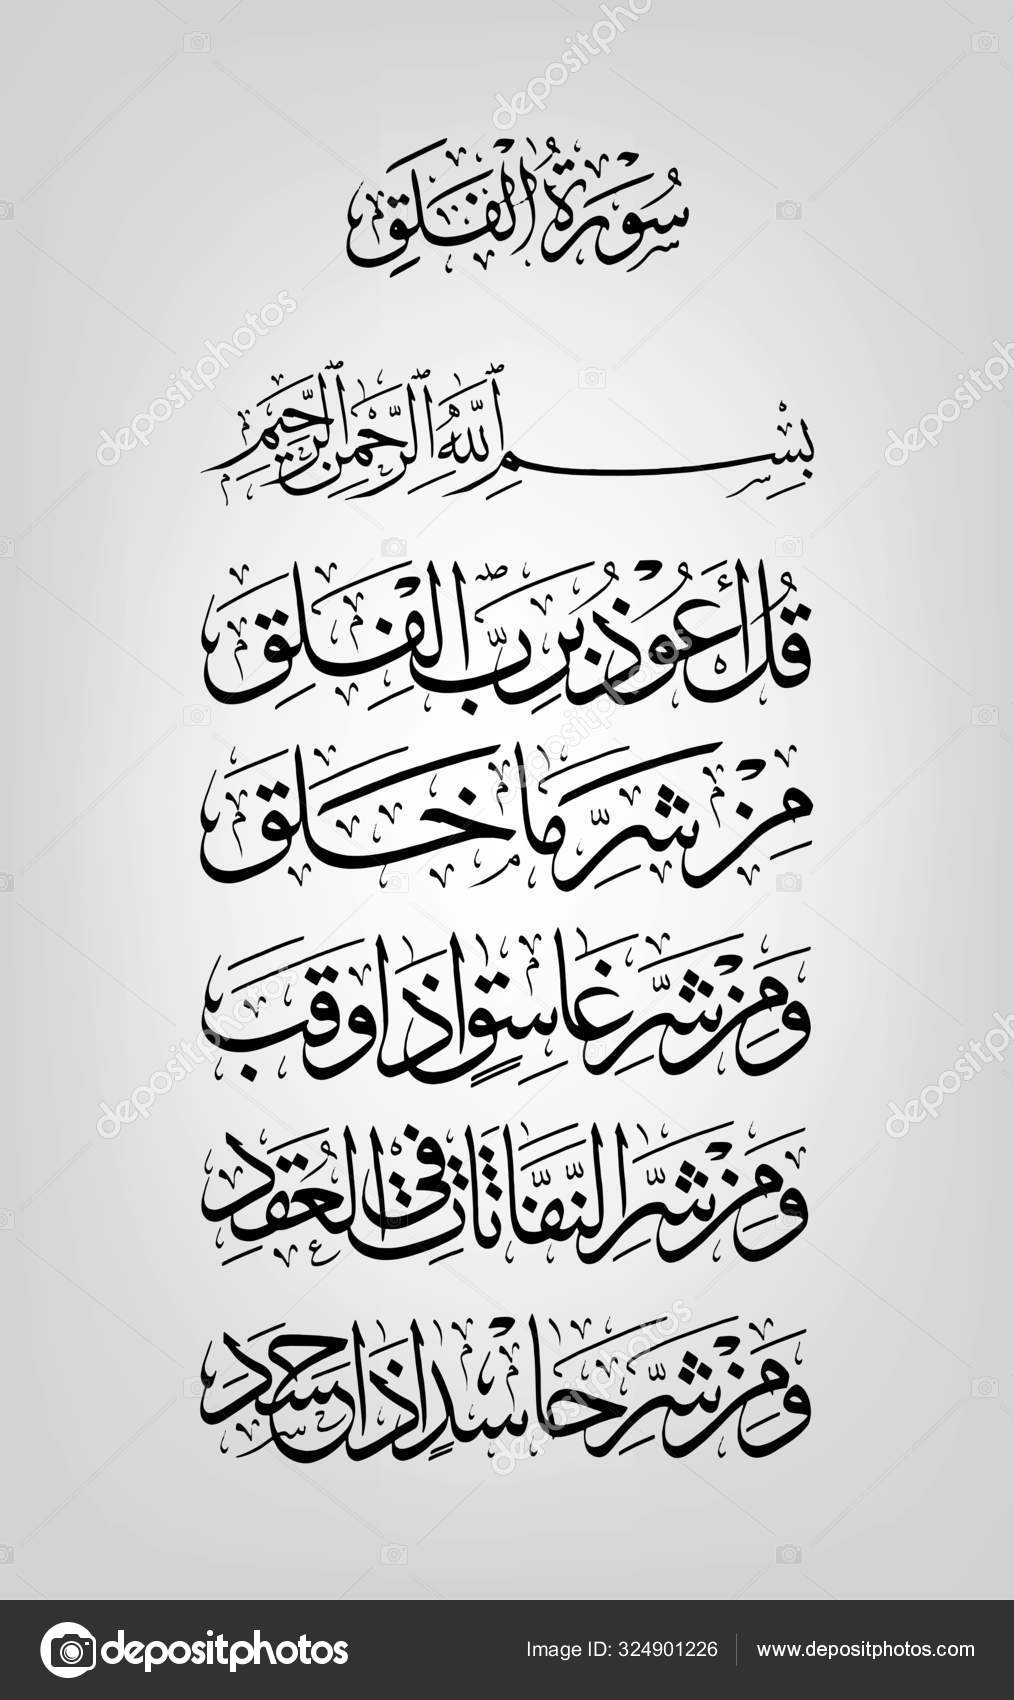 سُورَةُ الْفَلَقِ
بِسْمِ اللَّهِ الرَّحْمَنِ الرَّحِيمِ
قُلْ أَعُوذُ بِرَبِّ الْفَلَقِ
مِنْ شَرِّ مَا خَلَقَ
وَمِنْ شَرِّ غَاسِقٍ إِذَا وَقَبَ
وَمِنْ شَرِّ النَّفَّاثَاتِ فِي الْعُقَدِ
وَمِنْ شَرِّ حَاسِدٍ إِذَا حَسَدَ
depositphotos Image ID: 324901226 www.depositphotos.com